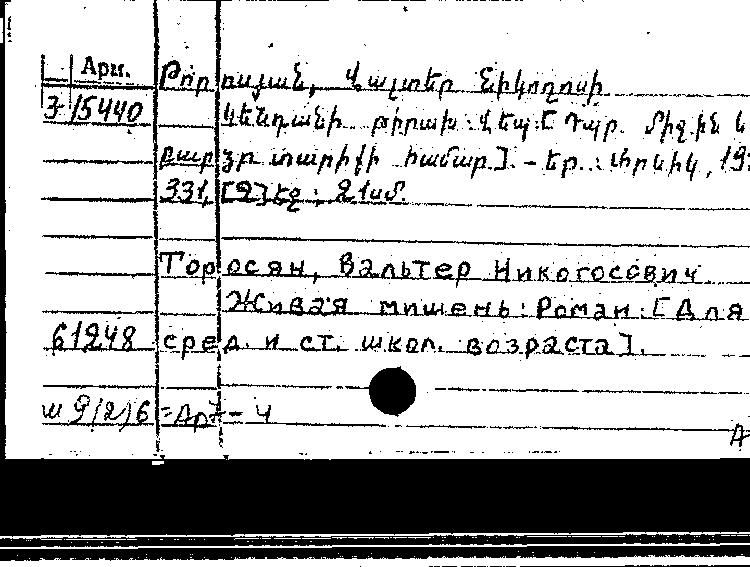 Арм. Թորոսյան, Վալտեր Նիկողոսի
3-15440 Կենդանի թիրախ: Վեպ: [Դպր. միջին և
բարձր տարիքի համար]. - Եր.: Սովետ.
331, [2] էջ; 21սմ.
Торосян, Вальтер Никогосович
Живая мишень: Роман: [Для
61248 сред. и ст. школ. возраста].
ш 9(2)6 =Ар7- 4
А